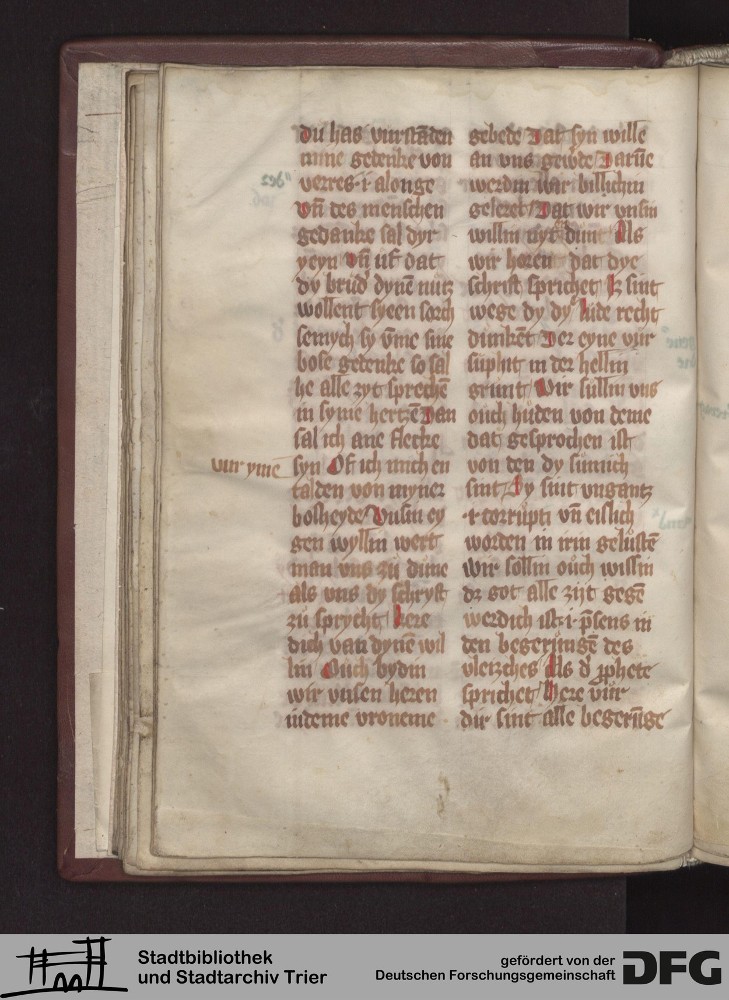 du has vurstāden
mine gedenke von
verres · i · alonge
vn̄ des menschen
gedanke sal dyr
yeyn vn̄ uf dat
dy brud' dynē nutz
wollent syeen sorch
semych sy v̄me sine
bose gedenke so sal
he alle zyt sprechē
in syme hertzē Dan
sal ich ane flecke
vur ymē syn Of ich mich en
talden von myner
bosheyde Vnsin ey
gen wyllin wert
man vns zů dune
als vns dy schryft
zů sprycht kere
dich van dynē wil
lin Ouch bydin
wir vnsen heren
indeme vroneme
gebede Dat syn wille
an vns gewde Darūe
werdin wir billichin
geleret Dat wir vnsin
willin nyt dunt Als
wir horent dat dye
schrift sprichet Iz sint
wege dy dy lude recht
dunkēt Der eyne vur
suphit in der hellin
grunt Wir sullin vns
ouch hůden von deme
dat gesprochen ist
von den dy sumich
sint Dy sint vngantz
· i · corrupti vn̄ eislich
worden in irin gelůstē
wir sollin ouch wissin
dz got alle zijt gegē
werdich ist · i · p̄sens in
den begerungē des
vleizches Als d' ꝓphete
sprichet Here vur
dir sint alle begerūge
Stadtbibliothek
und Stadtarchiv Trier
gefördert von der
Deutschen Forschungsgemeinschaft
DFG